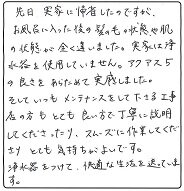 先日 実家に帰省したのですが、
お風呂に入った後の髪の毛の状態や肌
の状態が全く違いました。実家は浄
水器を使用していません。アクアス5
の良さをあらためて実感しました。
そしていつもメンテナンスをして下さる工事
店の方もとても良い方で丁寧に説明
してくださったり、スムーズに作業してくださ
りとても気持ちがよいです。
浄水器をつけて、快適な生活を送っていま
す。